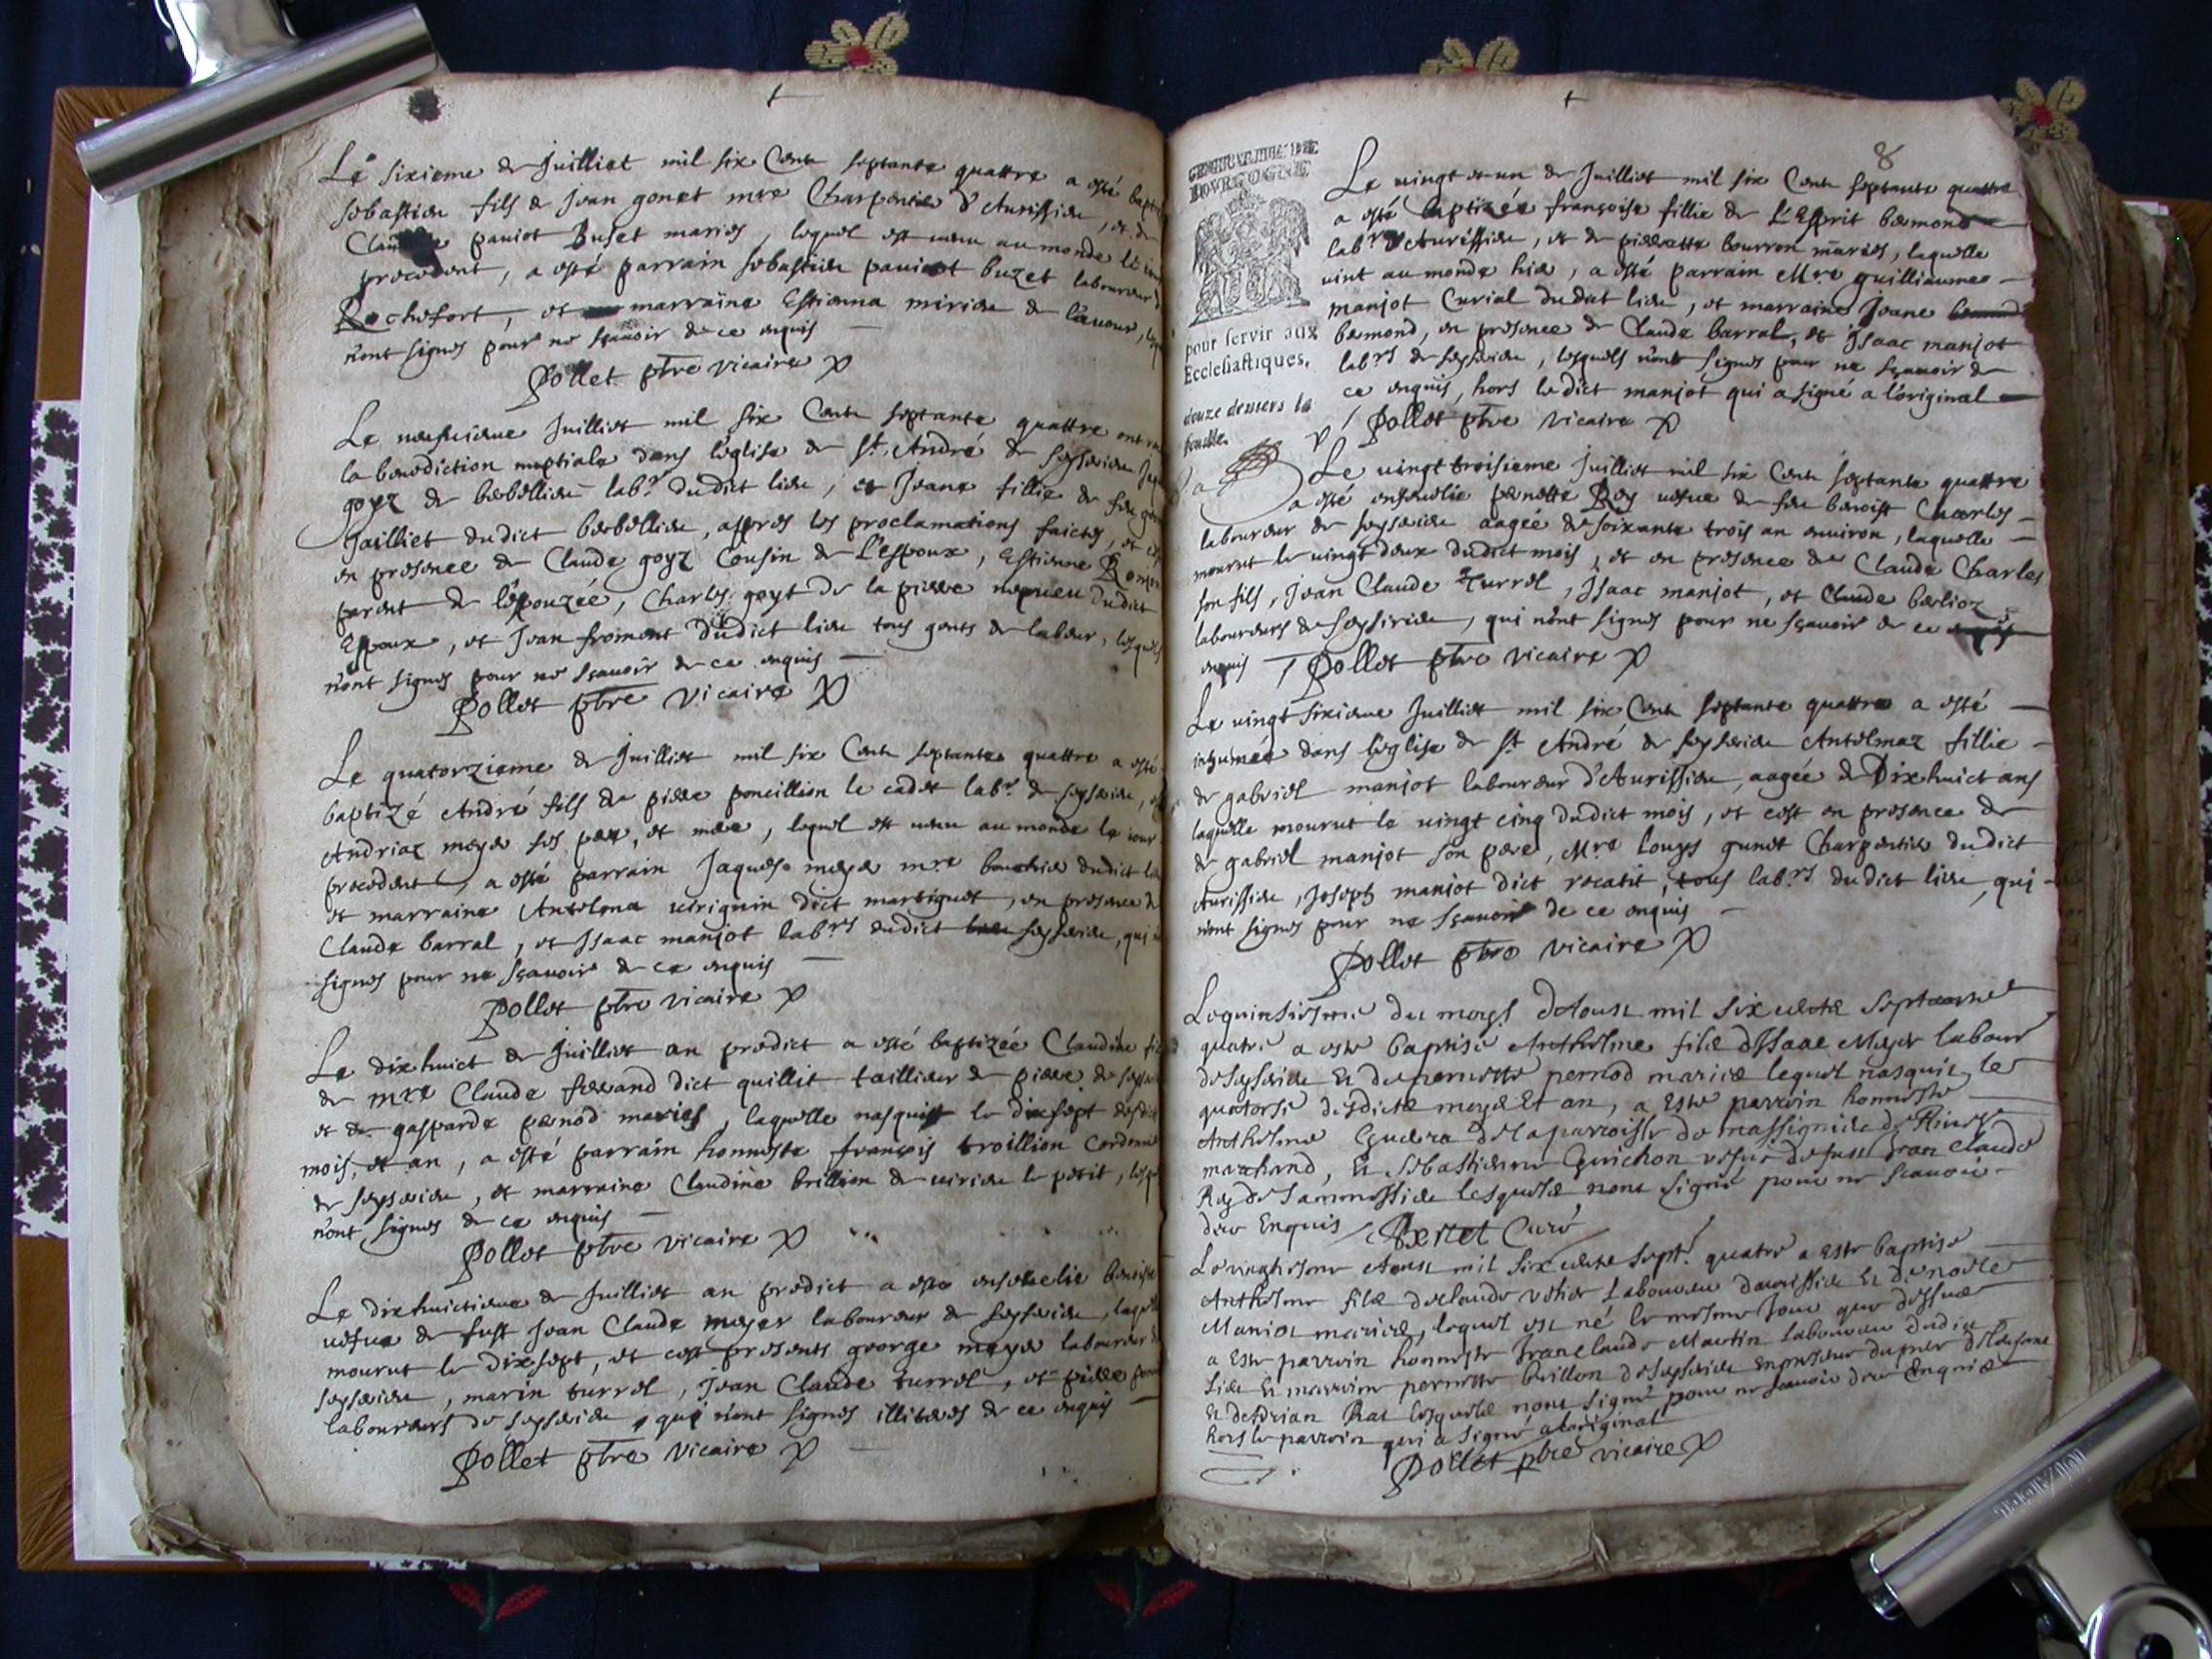 Le sixieme de Juilliet mil six Cents septante quattre a esté bapti
sebastien fils de Jean gonet mre Charpentier d'Aurissieu, et de
paviot Buset maries, lequel est venu au monde le
precedent, a esté parrain sebastien paviot buzet laboureur
Rochefort, et marraine Estienna de Lavour,
n'ont signes pour ne sçavoir de ce enquis
Pollet ptre vicaire
Le neufvieme Juilliet mil six Cents septante quattre ont
la benediction nuptiale dans l'eglise de St. André de seysseieu
goyz de berbellieu labr. dudict lieu, et Jeane fillie de feu
Jailliet dudict berbellieu, aspres les proclamations faictes, et
en presence de Claude goyz Cousin de L'espoux, Estienne
parent de l'espouzée, Charles goyt de la pierre nepveu dudict
Espoux, et Jean froment dudict lieu tous gents de labeur, lesquels
n'ont signes pour ne sçavoir de ce enquis
Pollet ptre vicaire
Le quatorzieme de Juilliet mil six Cents septante quattre a esté
baptizé André fils de pierre poncillion le cadet labr. de seysseieu,
Andriaz meyer ses pere, et mere, lequel est venu au monde le iour
precedent, a esté parrain Jaques meyer mre bouchier dudict
et marraine Antelena dict martignet, en presence de
Claude barral, et Isaac manjot labrs dudict seysseieu, qui
signes pour ne sçavoir de ce enquis
Pollet ptre vicaire
Le dixhuict de Juilliet an predict a esté baptizée Claudine
de mre Claude ferrand dict quillit taillieur de pierre de
et de gasparde pernod maries, laquelle nasquist le dixsept
mois, et an, a esté parrain honneste françois troillion
de seysseieu, et marraine Claudine brillion de virieu le petit,
n'ont signes de ce enquis
Pollet ptre vicaire
Le dixhuictieme de Juilliet an predict a esté ensevelie benoiste
vefue de fust Jean Claude meyer laboureur de seysseieu,
mourut le dixsept, et cest presents george meyer laboureur
seysseieu, marin turrel, Jean Claude turrel, et pierre
laboureurs de seysseieu, qui n'ont signes illiteres de ce enquis
Pollet ptre vicaire
8
BOVRGOGNE
pour servir aux
Ecclesiastiques,
douze deniers la
feuille.
Le vingt et un de Juilliet mil six Cents septante quattre
a esté baptizée françoise fillie de L'Esprit bermond
labr. d'Aurissieu, et de pierrette bourron maries, laquelle
vint au monde hier, a esté parrain Mre guilliaume
manjot Curial dudict lieu, et marraine Jeane
bermond, en presence de Claude barral, et Isaac manjot
labrs de seysseieu, lesquels n'ont signes pour ne sçavoir de
ce enquis, hors le dict manjot qui a signé a l'original
Pollet ptre vicaire
Le vingt troisieme Juilliet mil six Cents septante quattre
a esté ensevelie pernette Rey vefue de feu benoist Charles
laboureur de seysseieu aagée de soixante trois an environ, laquelle
mourut le vingt deux dudict mois, et en presence de Claude Charles
son fils, Jean Claude Turrel, Isaac manjot, et Claude berlioz
laboureurs de seysseieu, qui n'ont signes pour ne sçavoir de ce
enquis Pollet ptre vicaire
Le vingt sixieme Juilliet mil six Cents septante quattre a esté
inhumée dans l'eglise de St André de seysseieu Antelmaz fillie
de gabriel manjot laboureur d'Aurissieu, aagée de Dixhuict ans
laquelle mourut le vingt cinq dudict mois, et cest en presence de
de gabriel manjot son pere, Mre Louys gunet Charpentier dudict
Aurissieu, Joseph manjot dict recatit, tous labrs dudict lieu, qui
n'ont signes pour ne sçavoir de ce enquis
Pollet ptre vicaire
Le quinsiesme du moys d'Aoust mil six cents septante
quatre a este baptisé Anthelme filz d'Isaac Meyer labour
de seysseieu et de pernette pernod mariez lequel nasquit le
quatorse desdictz moys et an, a este parroin honneste
Anthelme de la parroisse de massignieu de Rives
marchand, et sebastienne Guichon vefue de fust Jean Claude
Rey de lesquelz n'ont signé pour ne scavoir
de ce Enquis Curé
Le vingtiesme Aoust mil six cents sept. quatre a este baptisé
Anthelme filz de claude Laboureur d'aurissieu et de
Maniot mariez, lequel est né le mesme Jour que dessus
a este parroin honneste Jean claude Martin laboureur dudict
lieu et marroine pernette brillon de seysseieu en presence
et d'Adrian Rat lesquelz n'ont signé pour ne scavoir de ce Enquis
hors le parroin qui a signé a l'original
Pollet ptre vicaire